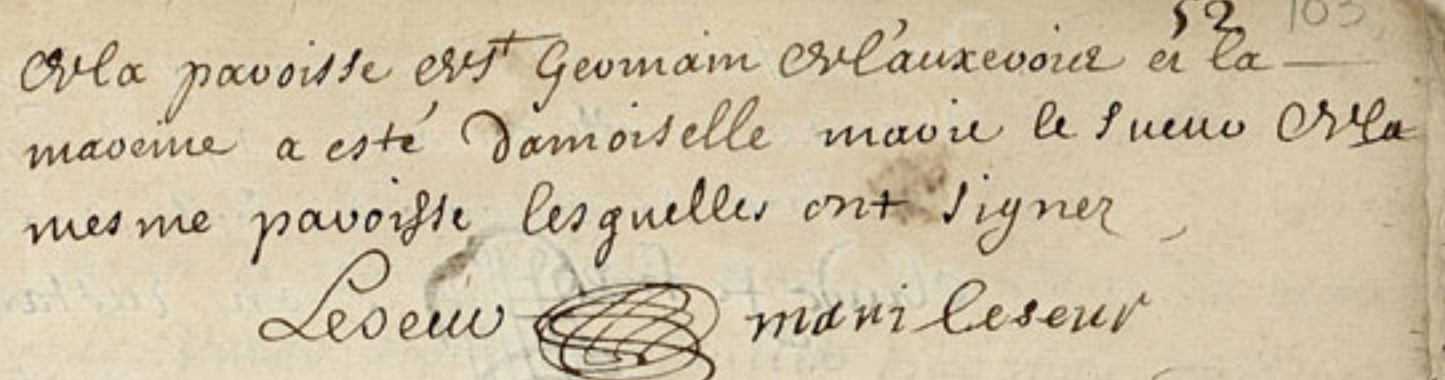 52 103
de la paroisse de st Germain de l'auxerois et la
mareine a esté Damoiselle marie le Sueur de la
mesme paroisse lesquelles ont signer
Leseur mari leseur